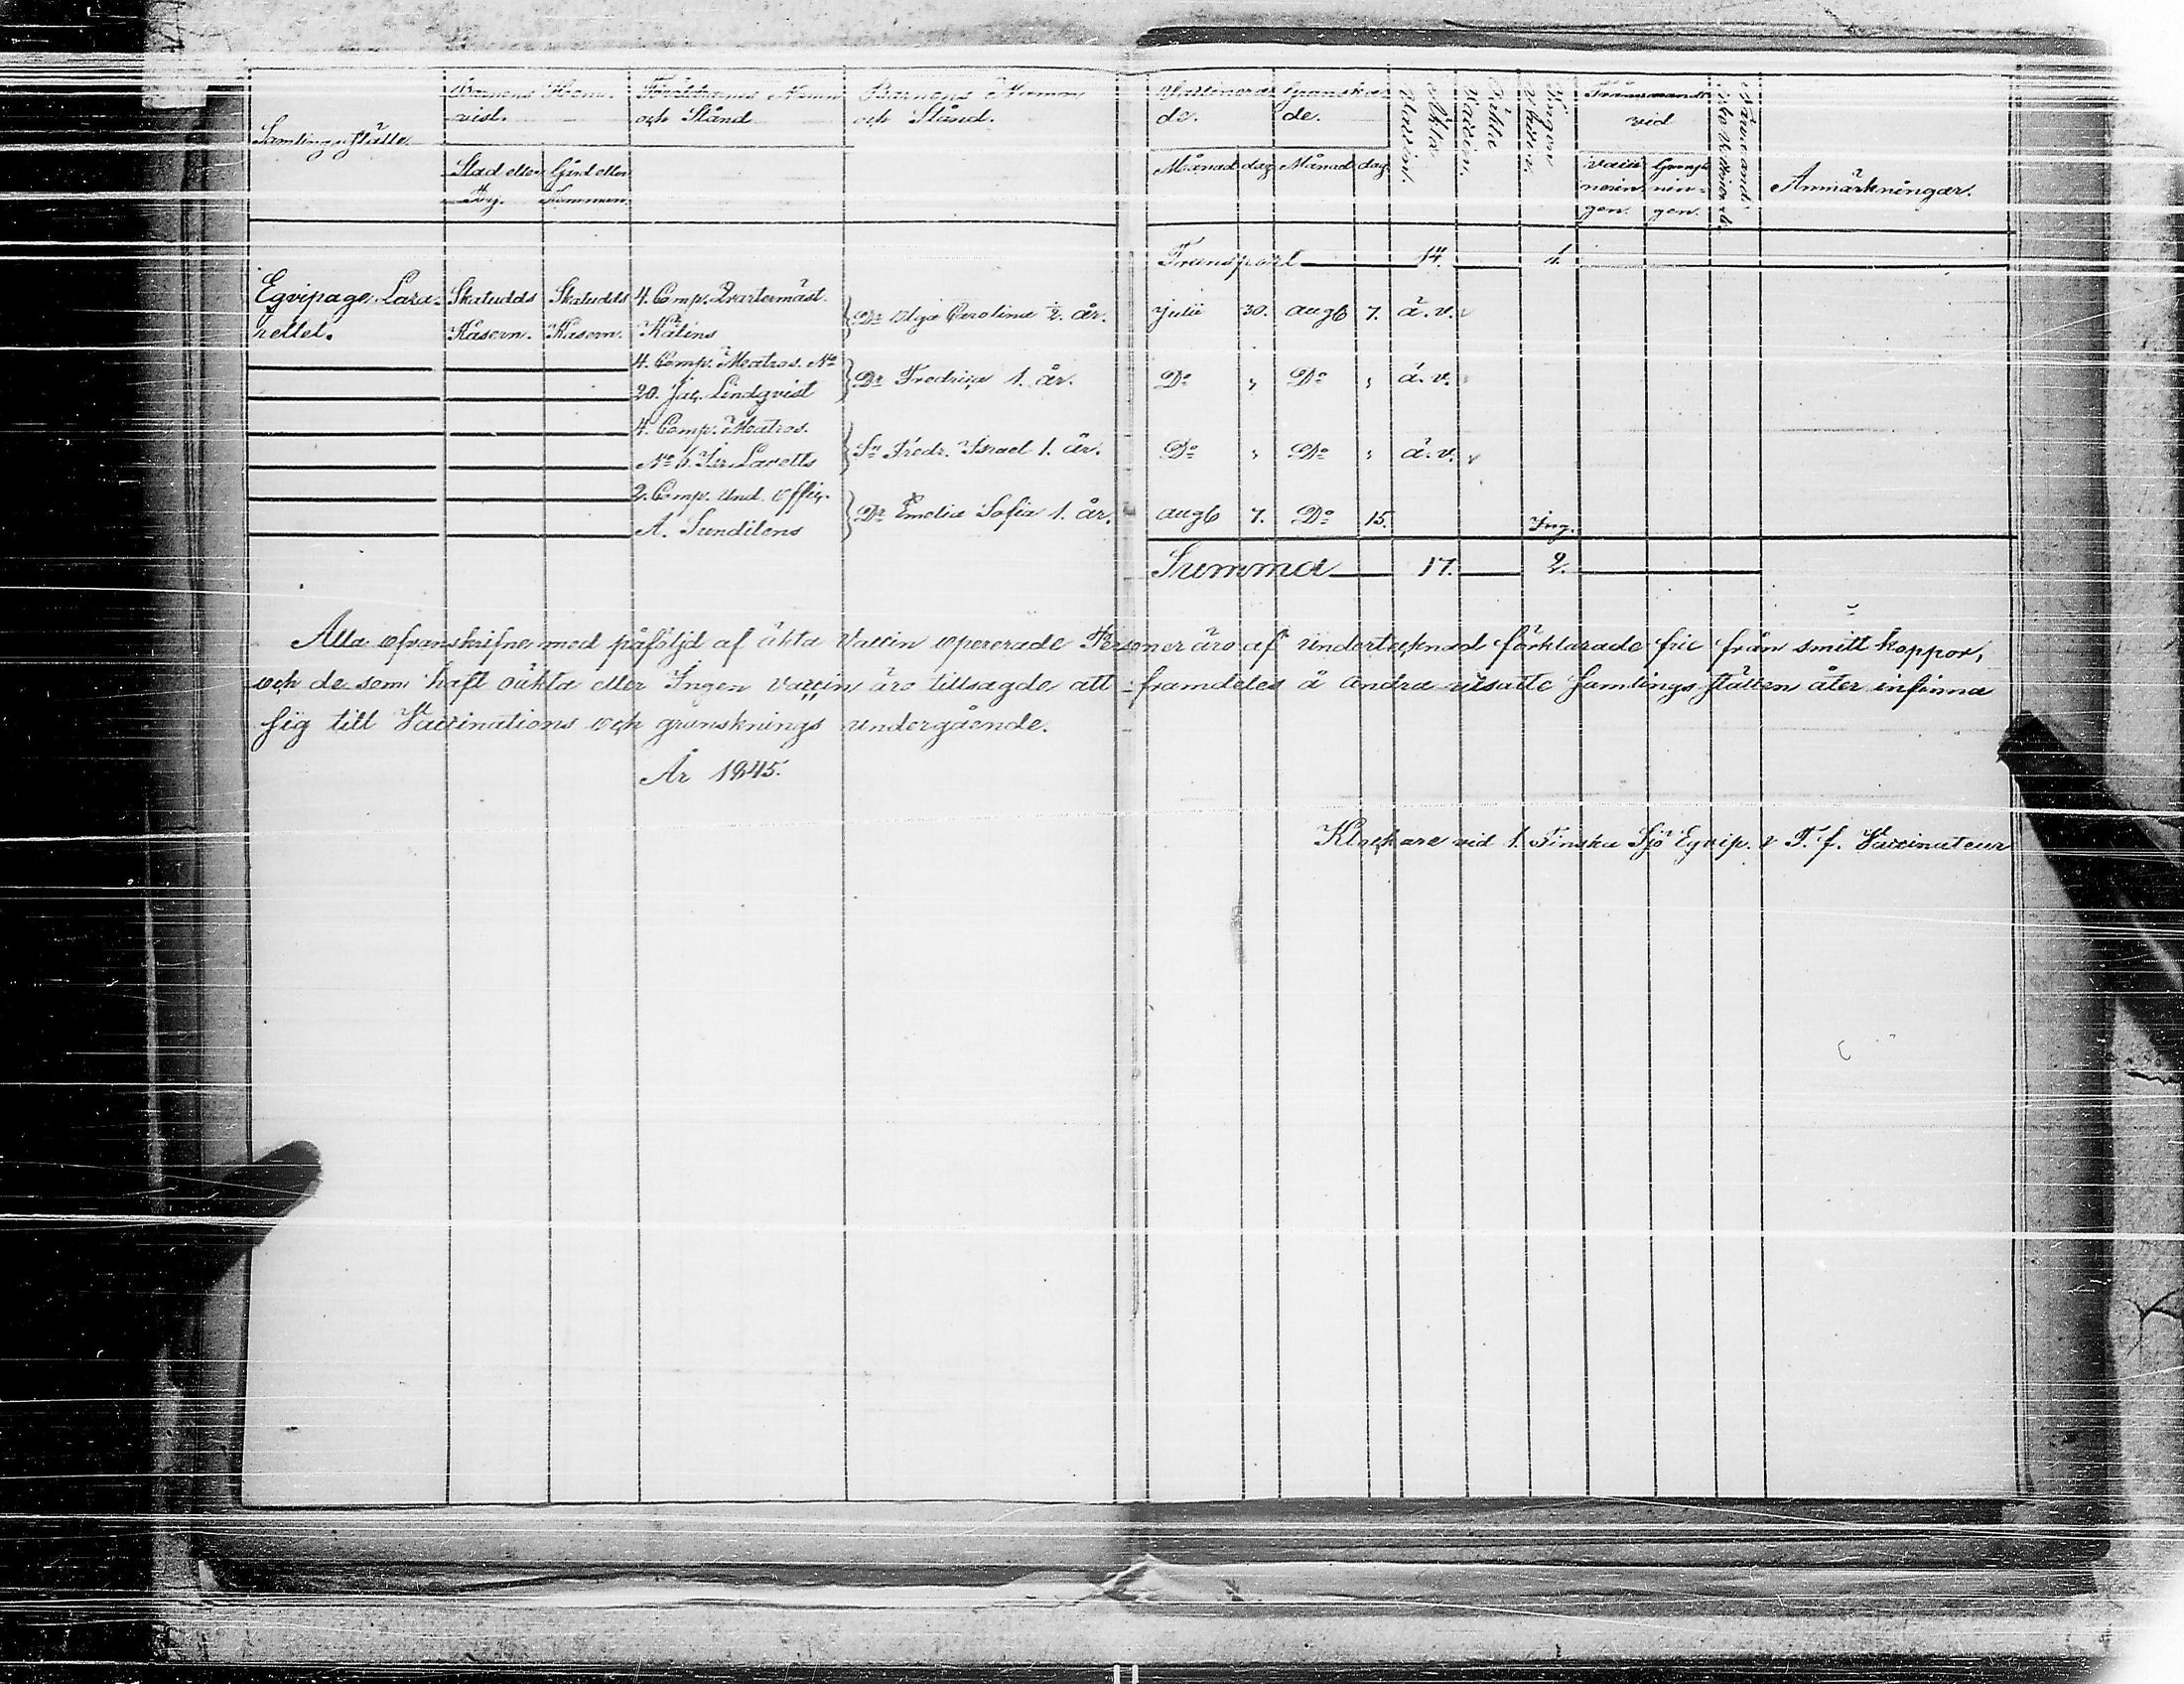 Samlingsställe.
Barnens Hem-
vist.
Föräldrarnes Namn
och Stånd
Barnens Namn
och Stånd.
Stad eller
By.
Gård eller
Vaccinera-
de.
Granska-
de.
Månad dag Månad dag
Äkta
Vaccin.
Oäkta
Vaccin.
Ingen
Vaccin.
vid
Vacci-
nerin-
gen.
Gransk-
nin-
gen.
Anmärkningar.
Transport 14. 1.
Egvipage Laza-
rettet.
Skatudds
Kasern.
Skatudds
Kasern.
4. Comp. Qvartermäst.
Kälins
Dr Olga Carolina ½ år.
Julii 30. Aug 7. ä.v.
4. Comp. Matros. No
20. Jac. Lindqvist
Dr Fredrica 1. år.
Do " Do " ä.v.
4. Comp. Matros.
No 6. Isr. Laretts
Sn Fredr. Israel 1. år.
Do " Do " ä.v.
2. Comp. Und. Offic.
A. Sundilens
Dr Emelia Sofia 1. år.
Aug 7. Do 15. Ing.
Summa 17. 2.
Alla ofvanskrifne med påföljd af äkta Vaccin opererade Personer äro af undertecknad förklarade frie från smittkoppor,
och de som haft oäkta eller Ingen vaccin äro tillsagde att framdeles å andra utsatte Samlings ställen åter infinna
sig till Vaccinations och gransknings undergående.
År 1845.
Klockare vid 1. Finska Sjö Eqvip. & T. f. Vaccinateur